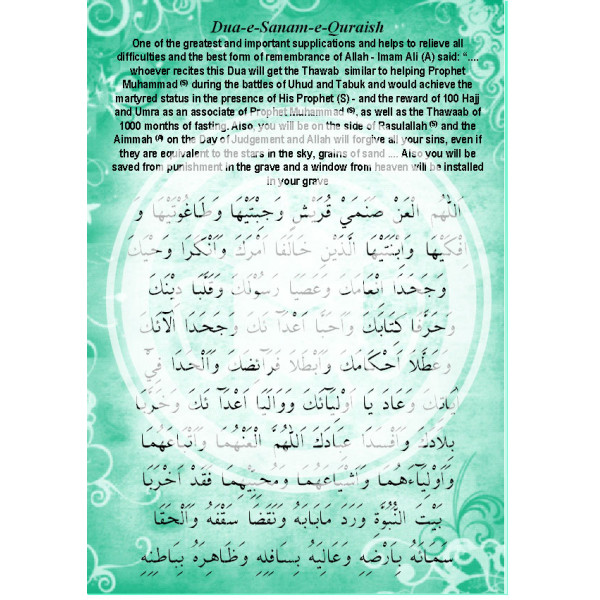 Dua-e-Sanam-e-Quraish
One of the greatest and important supplications and helps to relieve all
difficulties and the best form of remembrance of Allah - Imam Ali (A) said: “....
whoever recites this Dua will get the Thawab similar to helping Prophet
Muhammad (S) during the battles of Uhud and Tabuk and would achieve the
martyred status in the presence of His Prophet (S) - and the reward of 100 Hajj
and Umra as an associate of Prophet Muhammad (S), as well as the Thawaab of
1000 months of fasting. Also, you will be on the side of Rasulallah (S) and the
Aimmah (A) on the Day of Judgement and Allah will forgive all your sins, even if
they are equivalent to the stars in the sky, grains of sand .... Also you will be
saved from punishment in the grave and a window from heaven will be installed
in your grave
اَللّٰهُمَّ الْعَنْ صَنَمَيْ قُرَيْشٍ وَجِبْتَيْهَا وَطَاغُوْتَيْهَا وَ
اِفْكَيْهَا وَابْنَتَيْهَا الَّذَيْنِ خَالَفَا اَمْرَكَ وَاَنْكَرَا وَحْيَكَ
وَجَحَدَا اِنْعَامَكَ وَعَصَيَا رَسُوْلَكَ وَقَلَّبَا دِيْنَكَ
وَحَرَّفَا كِتَابَكَ وَاَحَبَّا اَعْدَآئَكَ وَجَحَدَا اٰلَآئَكَ
وَعَطَّلَا اَحْكَامَكَ وَاَبْطَلَا فَرَآئِضَكَ وَاَلْحَدَا فِيْٓ
اٰيَاتِكَ وَعَادَيَا اَوْلِيَآئَكَ وَوَالَيَا اَعْدَآئَكَ وَخَرَّبَا
بِلَادَكَ وَاَفْسَدَا عِبَادَكَ اَللّٰهُمَّ الْعَنْهُمَا وَاَتْبَاعَهُمَا
وَاَوْلِيَآءَهُمَا وَاَشْيَاعَهُمَا وَمُحِبِّيْهِمَا فَقَدْ اَخْرَبَا
بَيْتَ النُّبُوَّةِ وَرَدَمَا بَابَهُ وَنَقَضَا سَقْفَهُ وَاَلْحَقَا
سَمَائَهُ بِاَرْضِهِ وَعَالِيَهُ بِسَافِلِهِ وَظَاهِرَهُ بِبَاطِنِهِ